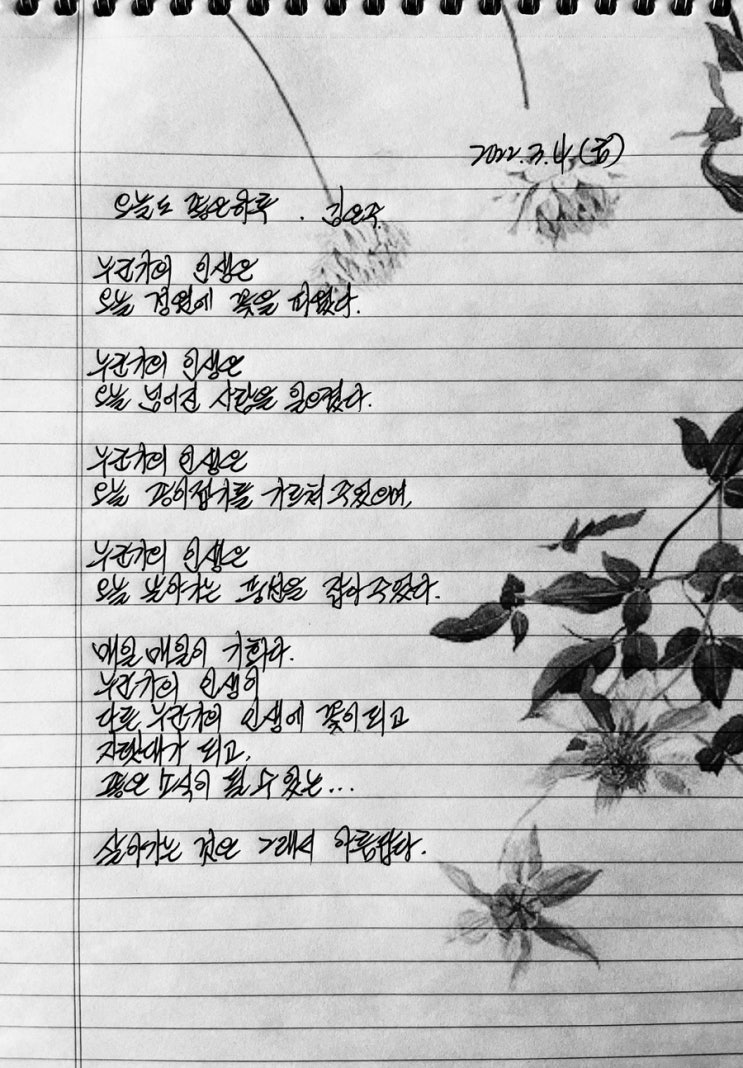 2022.3.4.(금)
오늘도 평온하루 . 김은주.
누군가의 인생은
오늘 정원에 꽃을 피웠다.
누군가의 인생은
오늘 넘어진 사람을 일으켰다.
누군가의 인생은
오늘 종이접기를 가르쳐 주었으며,
누군가의 인생은
오늘 날아가는 풍선을 잡아주었다.
매일 매일이 기회다.
누군가의 인생이
다른 누군가의 인생에 꽃이 되고
지팡대가 되고,
좋은 소식이 될 수 있는...
살아가는 것은 그래서 아름답다.